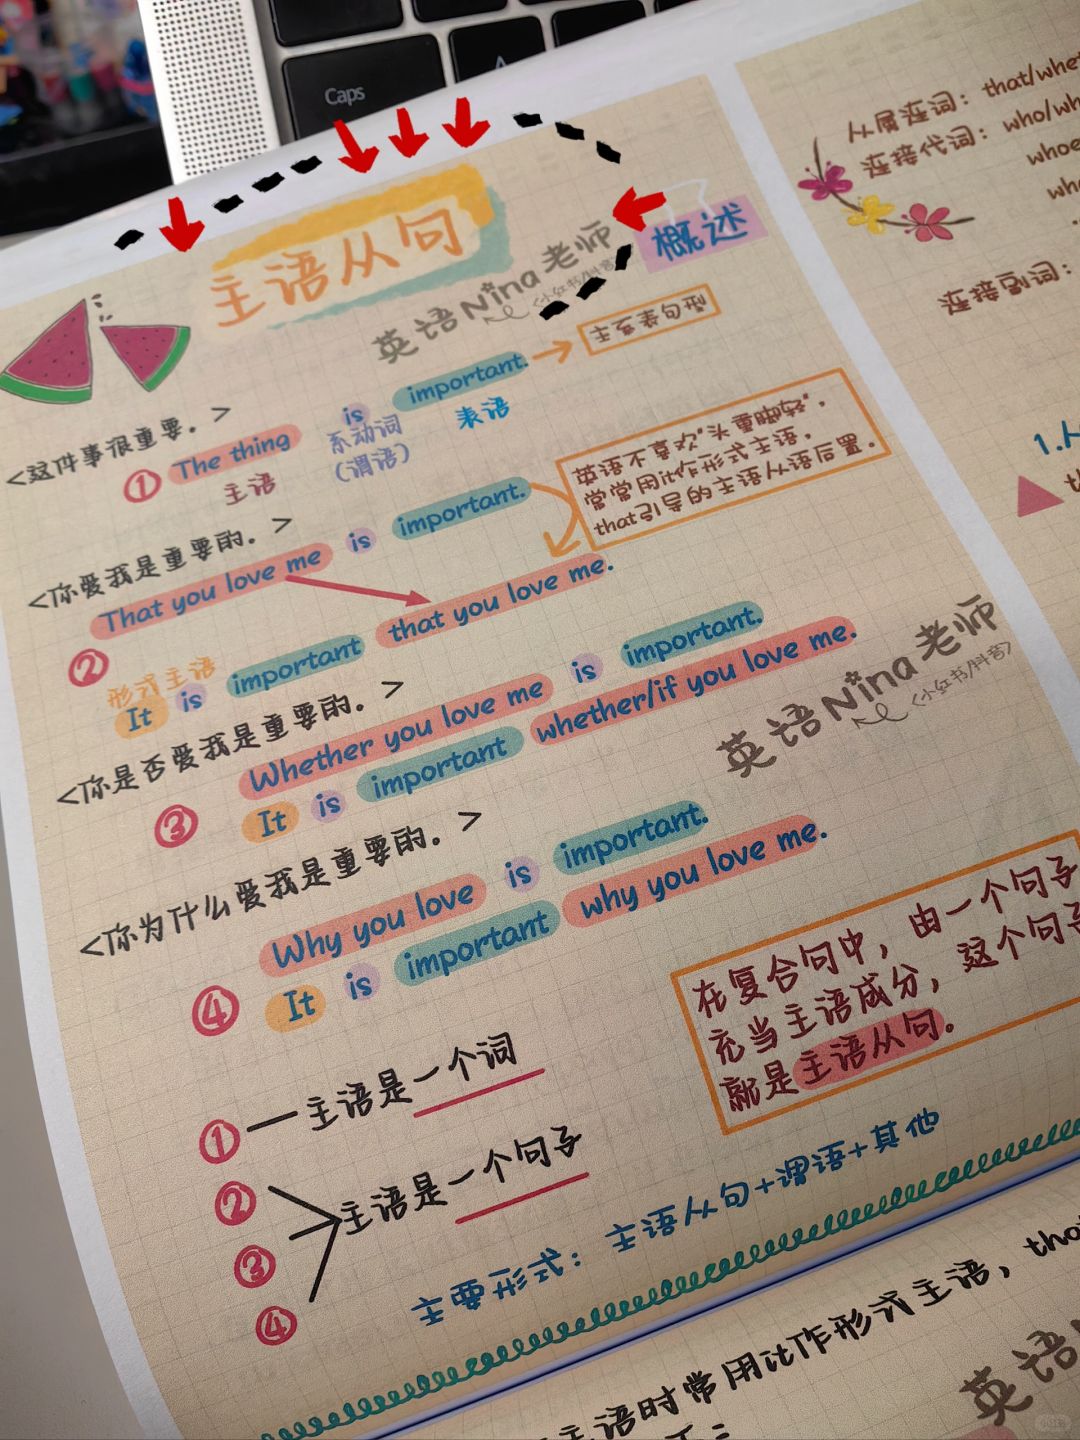 Caps
主语从句
概述
英语Nina老师
<小红书/抖音>
<这件事很重要。>
① The thing is important. → 主系表句型
主语 系动词 表语
(谓语)
<你爱我是重要的。>
That you love me is important.
英语不喜欢"头重脚轻",
常常用it作形式主语,
that引导的主语从语后置.
② that you love me.
形式主语
It is important
<你是否爱我是重要的。>
③ Whether you love me is important.
It is important whether/if you love me.
英语Nina老师
<小红书/抖音>
<你为什么爱我是重要的。>
④ Why you love is important.
It is important why you love me.
在复合句中，由一个句子
充当主语成分，这个句子
就是主语从句。
① 主语是一个词
② 主语是一个句子
③
④
主要形式：主语从句+谓语+其他
从属连词：that/whet
连接代词：who/wh
whoe
wh
连接副词：
1.
th
主语时常用it作形式主语，tha
英语